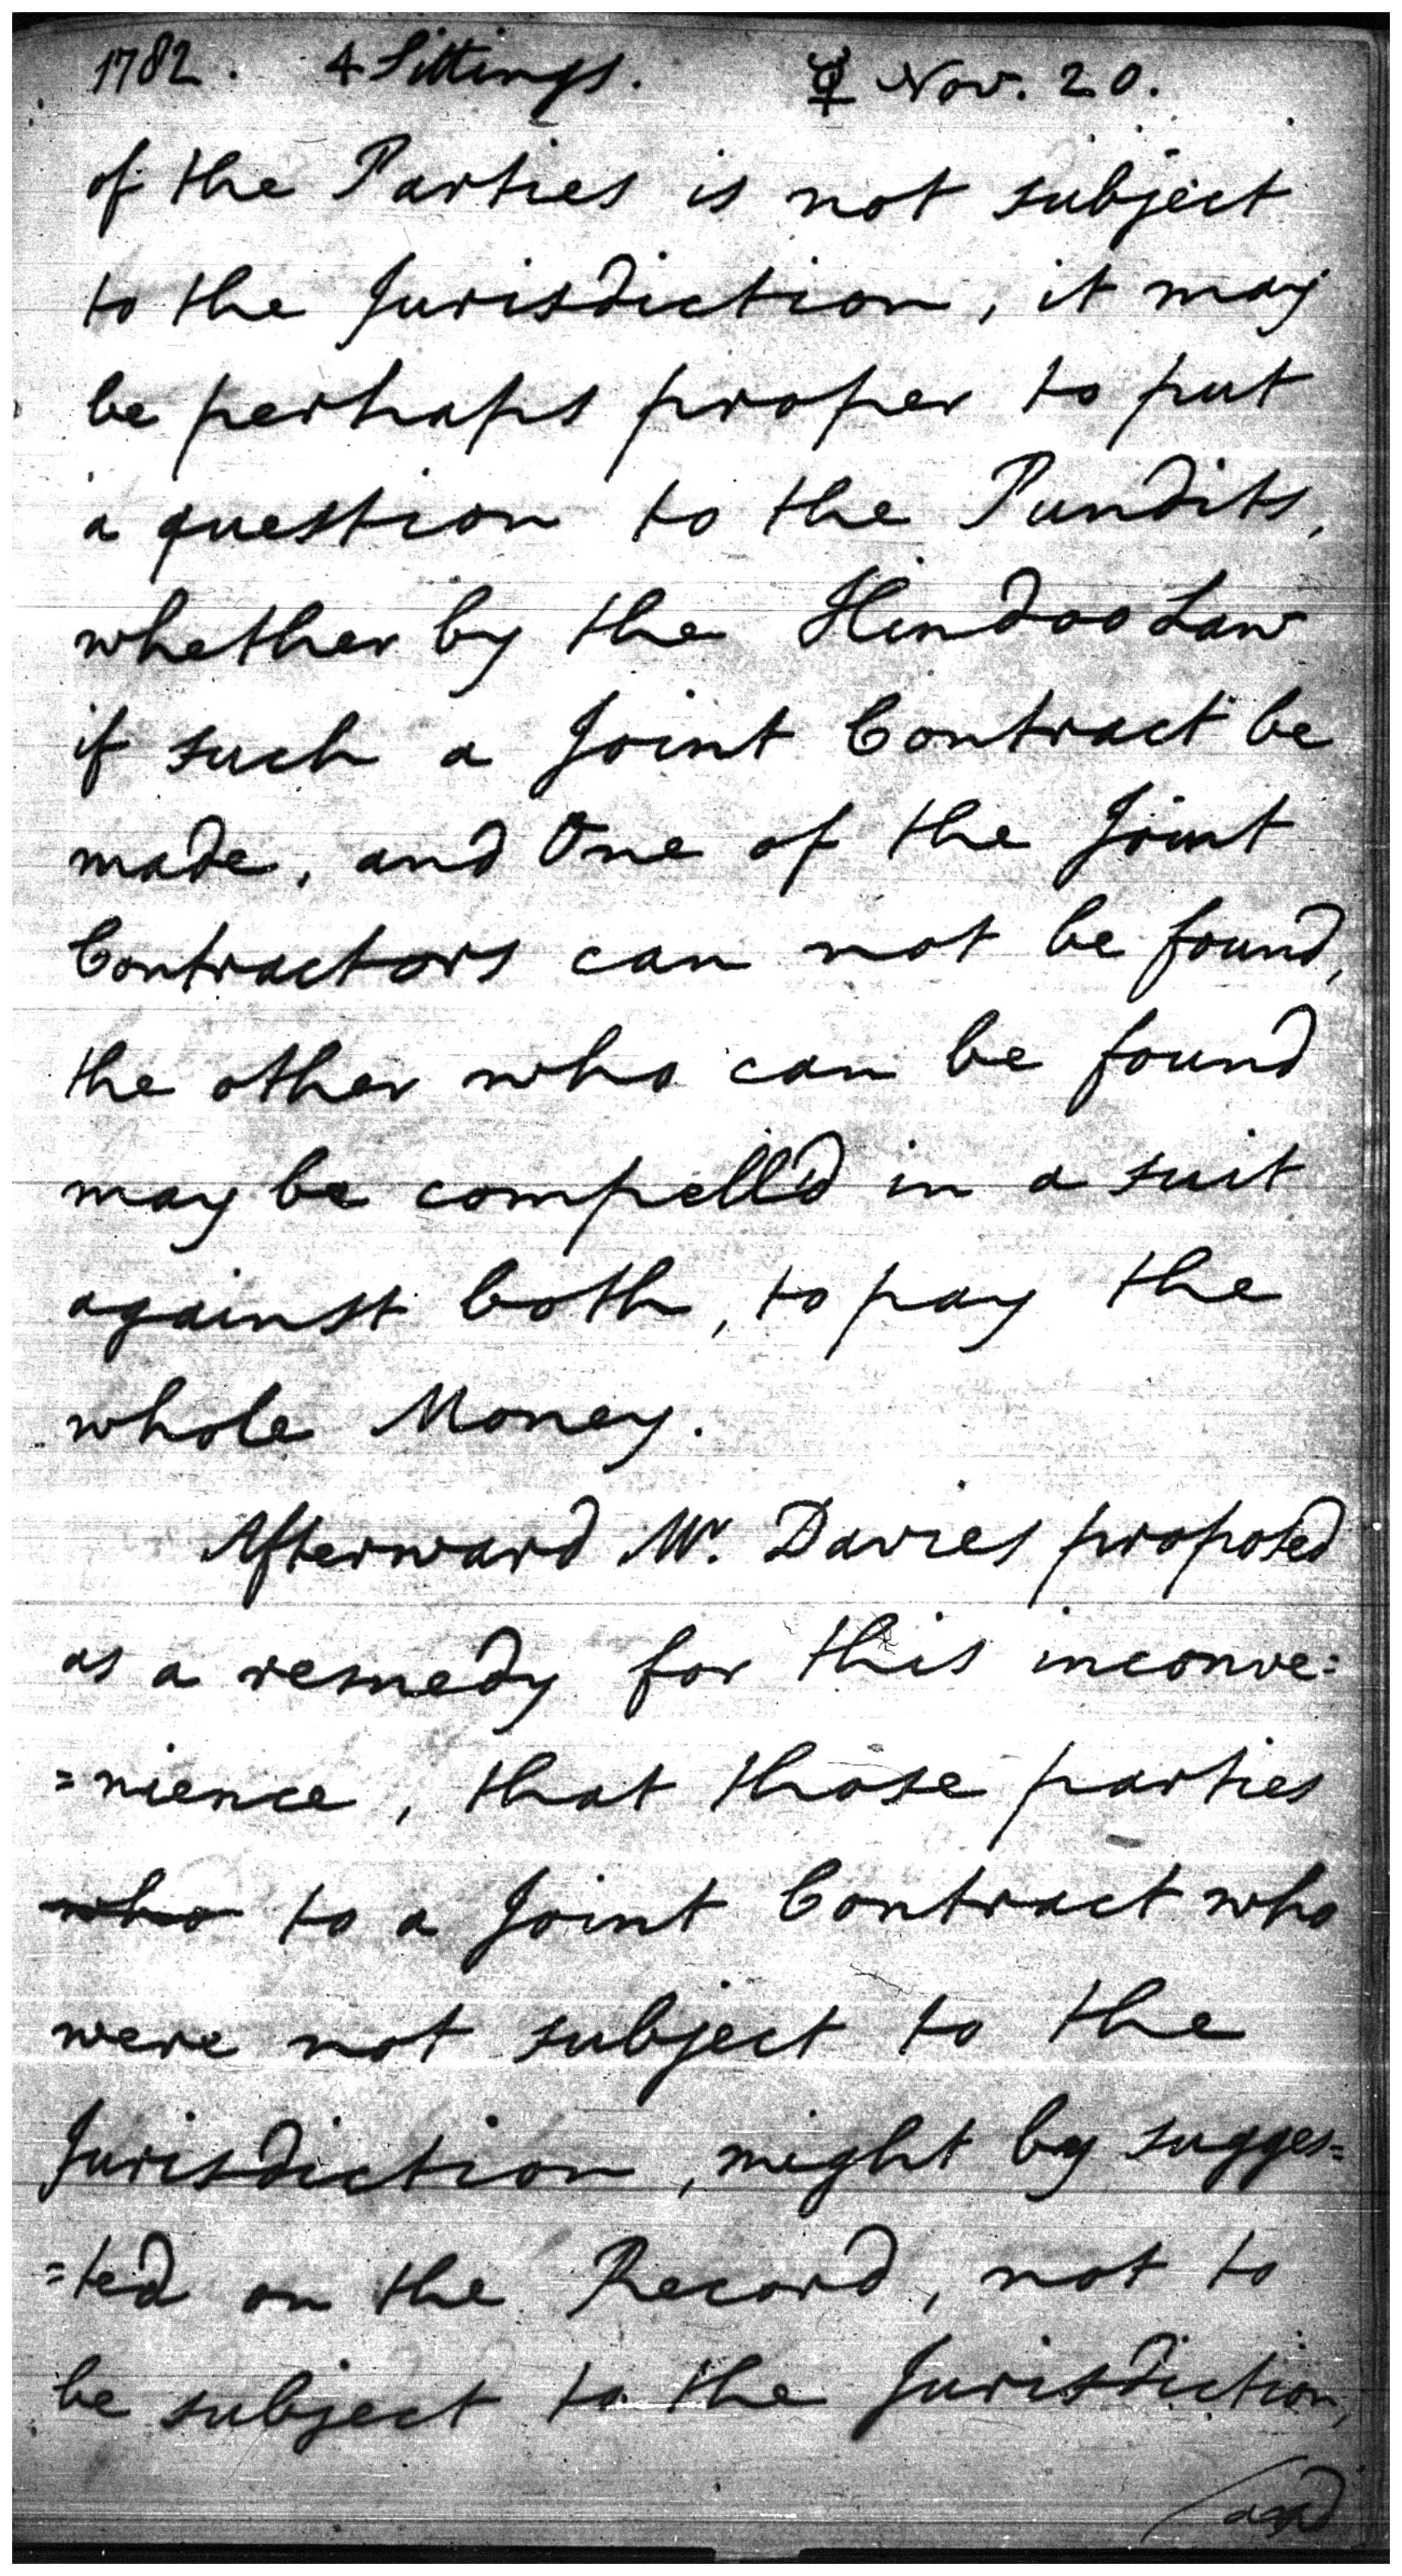 1782. 4 Sittings. ☿ Nov. 20.
of the Parties is not subject
to the Jurisdiction, it may
be perhaps proper to put
a question to the Pundits,
whether by the Hindoo Law
if such a Joint Contract be
made, and One of the Joint
Contractors can not be found,
the other who can be found
may be compell'd in a suit
against both, to pay the
whole Money.
Afterward Mr. Davies proposed
as a remedy for this inconve=
=nience, that those parties
who to a Joint Contract who
were not subject to the
Jurisdiction, might by sugges=
=ted on the Record, not to
be subject to the Jurisdiction,
/and